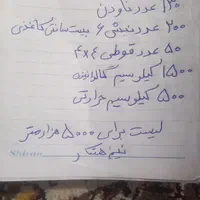 ۱۳۰ عدد ناودن
۲۰۰ عدد نبشی ۶ بیست سانتی کاغذی
۵۰ عدد قوطی ۴×۴
۱۵۰۰ کیلو سیم گالوانیزه
۵۰۰ کیلو سیم حرارتی
لیست برای ۵۰۰۰ هزار متر
نیم هکتار